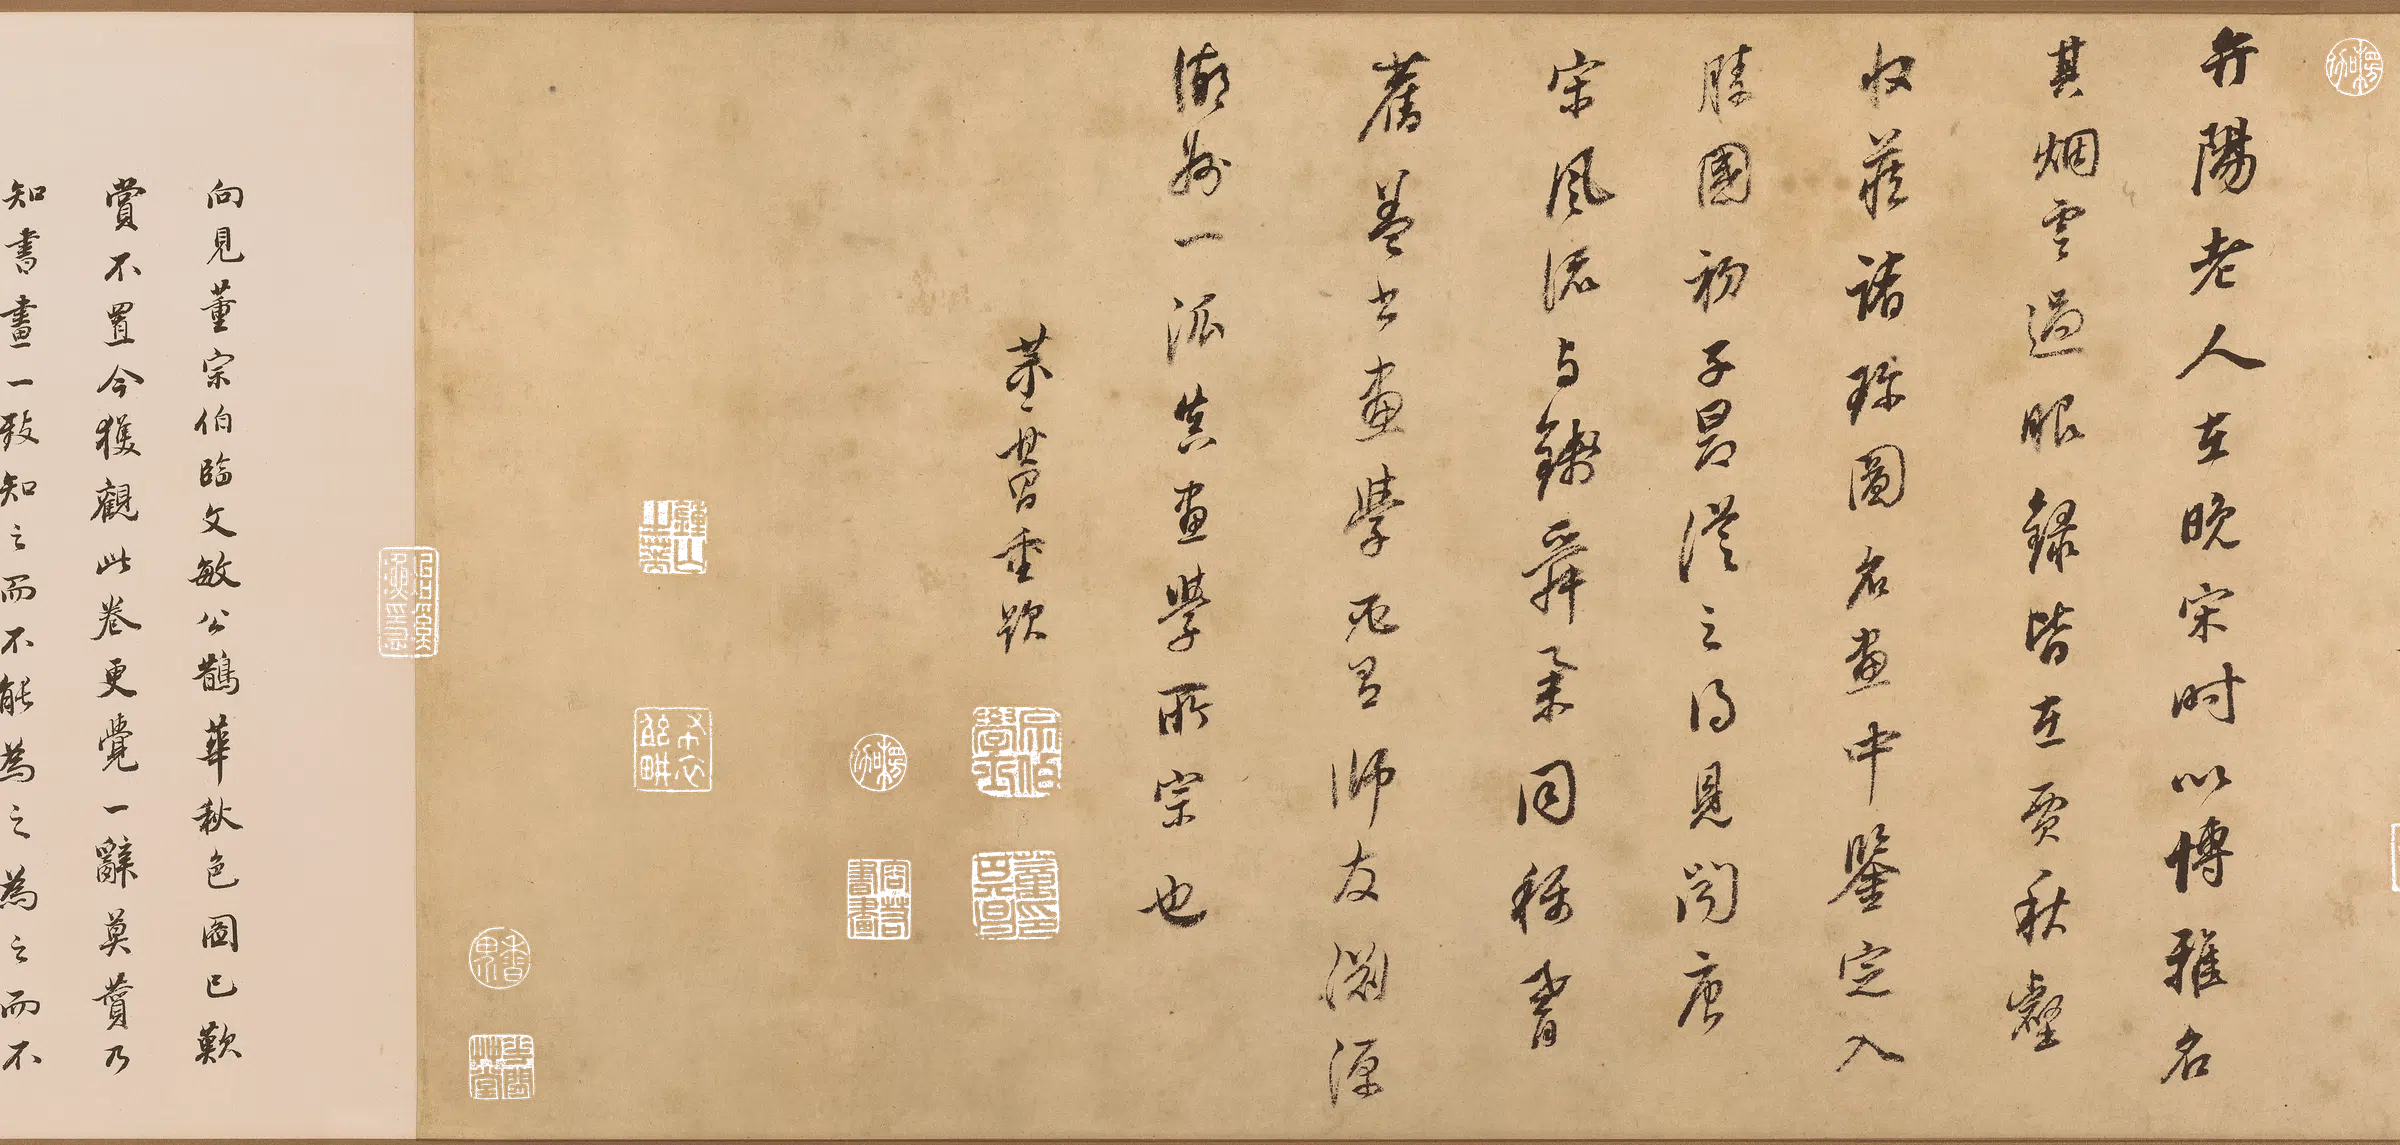 弁陽老人在晚宋时以博雅名
其烟雲過眼録皆在賈秋壑
收藏諸珍圖名畫中鑒定入
勝國初子昂從之得見聞唐
宋風流与錢舜舉同称耆
舊蓋書畫學必有師友淵源
湖州一派真畫學所宗也
董其昌重題
向見董宗伯臨文敏公鵲華秋色圖已歎
賞不置今獲觀此卷更覺一辭莫贊乃
知書畫一致知之而不能為之為之而不